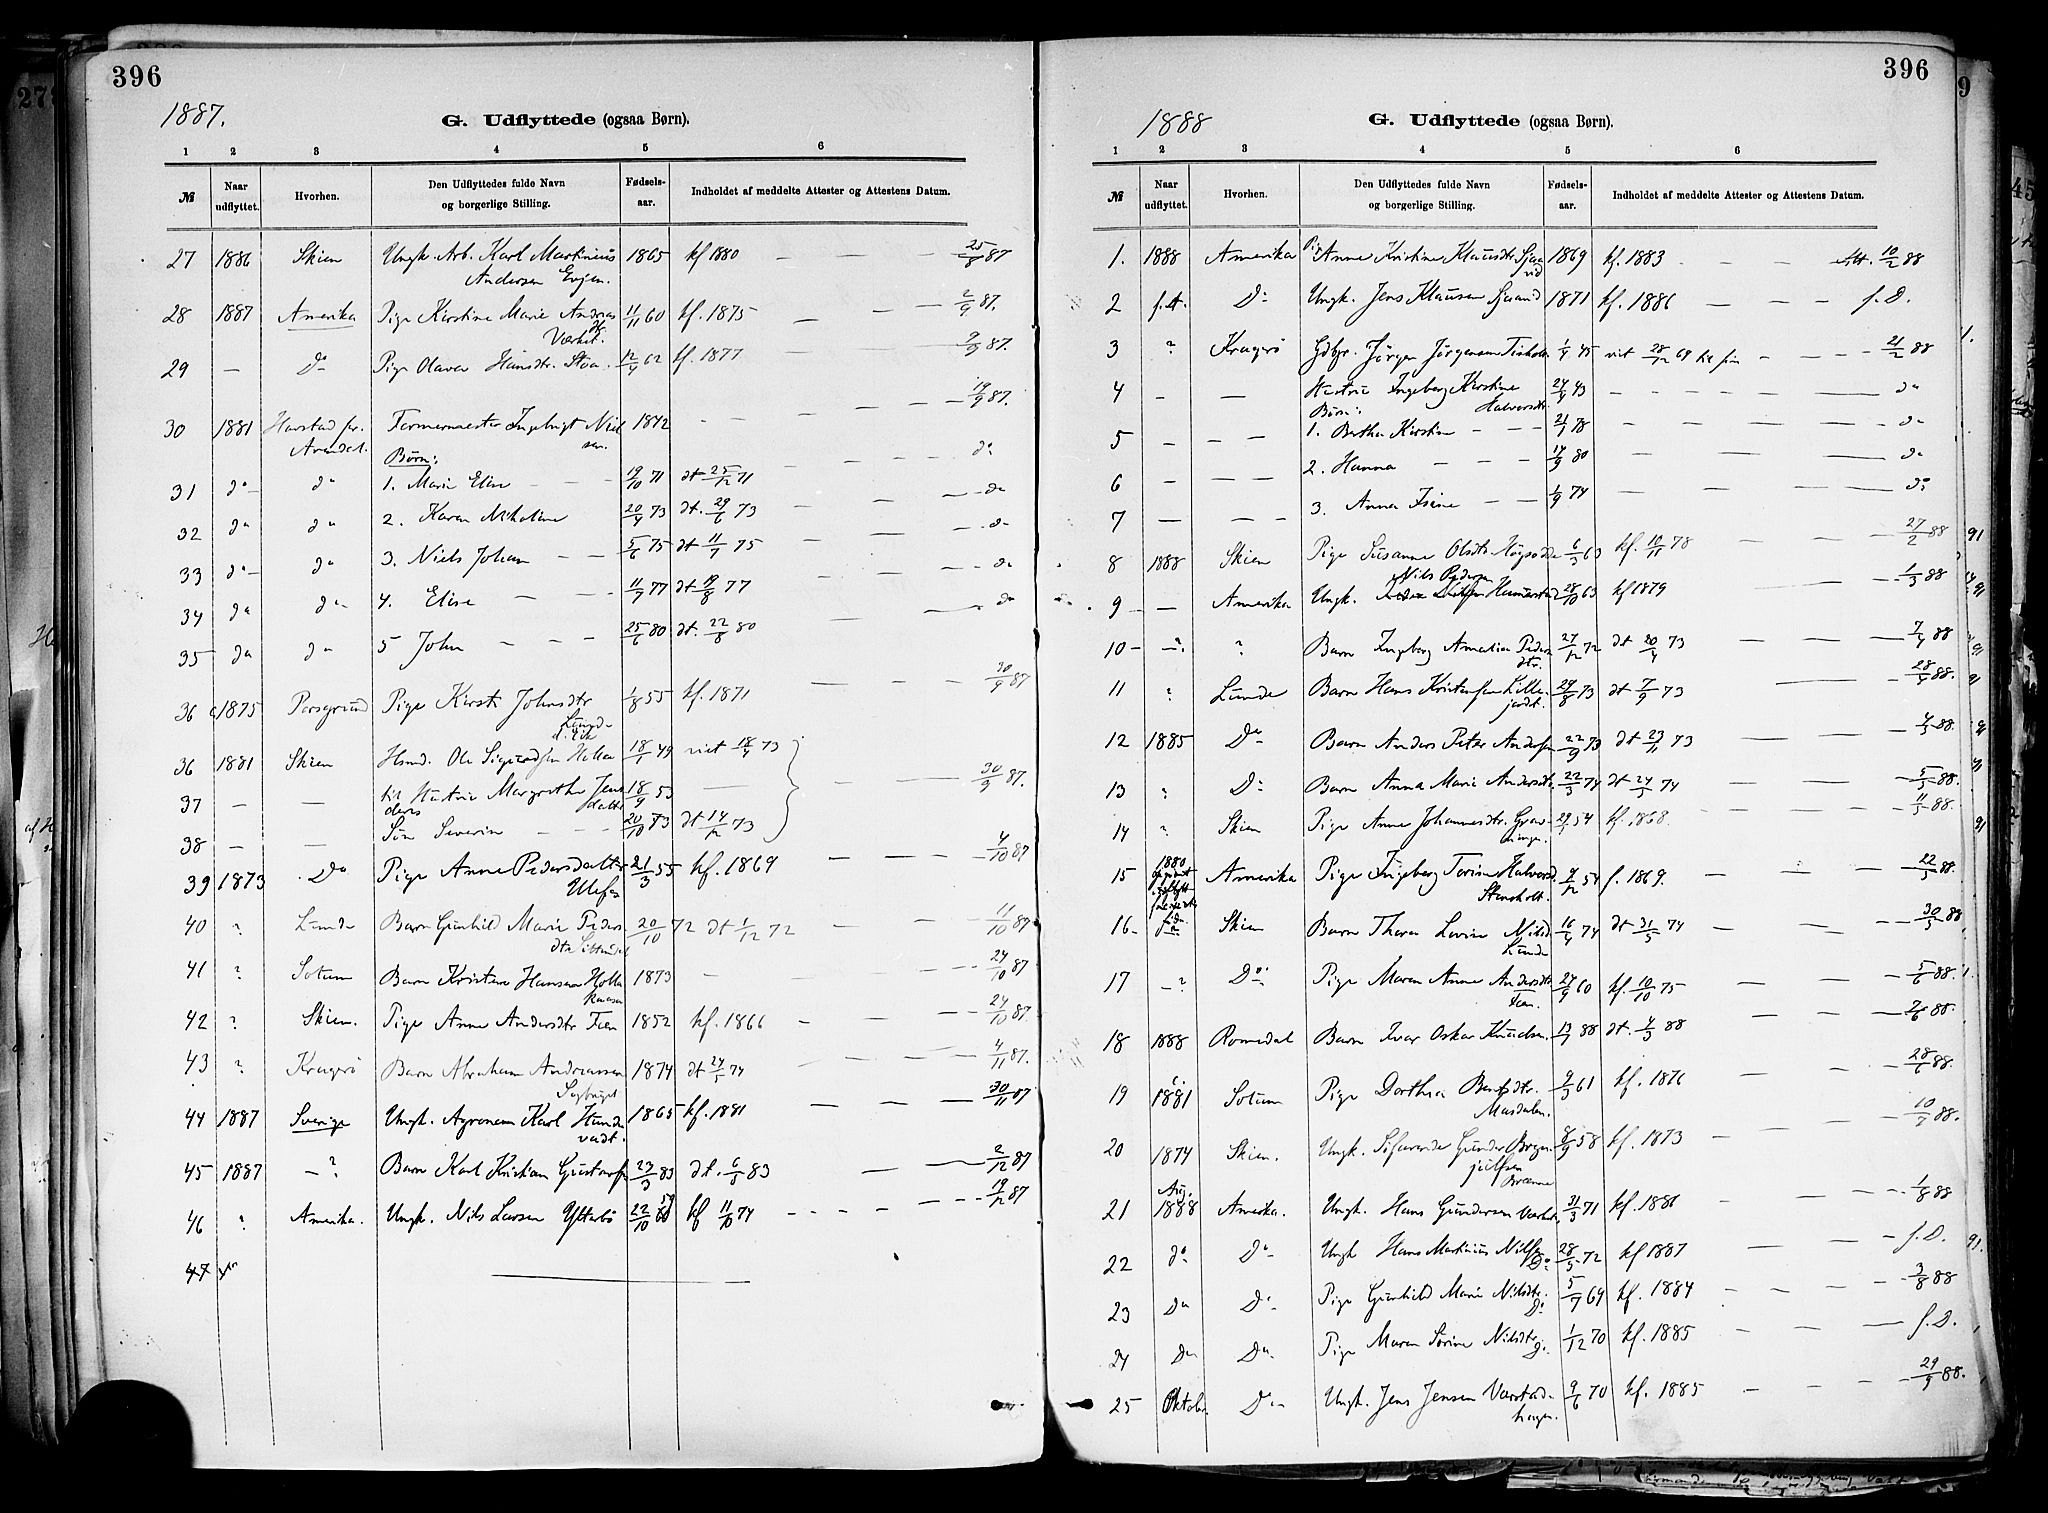 396
1887.
G. Udflyttede (ogsaa Børn).
1 2 3 4 5 6
№ Naar udflyttet. Hvorhen. Den Udflyttedes fulde Navn og borgerlige Stilling. Fødsels-aar. Indholdet af meddelte Attester og Attestens Datum.
27 1886 Skien Ungk. Arb. Karl Martinius 1865 kf 1880 — — — 25/8 87
Andersen Evjen.
28 1887 Amerika Pige Kirstine Marie Andreas 11/11 60 kf. 1875 — — — 2/9 87.
Værket.
29 — Do Pige Olava Hansdtr. Stoa. 12/4 62 kf. 1877 — — 9/9 87.
30 1881 Arendal. Formermester Ingebrigt Niel 1842 - — — 19/9 87.
sen.
Børn:
31 do do 1. Marie Elise — 19/10 71 dt 25/12 71 — — do
32 do do 2. Karen Nikoline 20/4 73 dt. 29/6 73 — — do
33 do do 3. Niels Johan — — 5/6 75 dt 11/7 75 — — do
34 do do 4. Elise — — 11/7 77 dt 19/8 77 — — do
35 do do 5 John — — 25/6 80 dt. 22/8 80 — — do
36 1875 Porsgrund Pige Kirsti Johnsdtr 1/8 55 kf. 1871 — — 30/9 87
36 1881 Skien Hsmd. Ole Sigurdsen Hella 18/1 49 viet 18/4 73
37 — — Hustru Margrethe Jens 18/9 53 — — — 30/9 87.
deres datter
38 — — Søn Severin — — 20/10 73 dt 14/12 73
39 1873 Do Pige Anne Pedersdatter 21/3 55 kf. 1869 — — — 4/10 87
Ulefos
40 ? Lunde Barn Gunhild Marie Peders 20/10 72 dt 1/12 72 — — 11/10 87
41 ? Solum Barn Kristen Hansen Holla 1873 — — — 24/10 87
42 ? Skien. Pige Anne Andersdtr Fæn 1852 kf. 1866 — — — 24/10 87.
43 ? Kragerø Barn Abraham Andreassen 1874 dt 24/5 74 — — 4/11 87.
44 1887 Sverige Ungk. Agronom Karl Hunde 1865 kf. 1881 — — — 30/11 87
vadt.
45 1887 — ? Barn Karl Kristian Gustavsen 23/3 83 dt. 6/5 83 — — 2/12 87
46 ? Amerika. Ungk. Nils Larsen Yttebø 22/10 59 kf 11/10 74 - - - 19/12 87
47
396
1888
G. Udflyttede (ogsaa Børn).
1 2 3 4 5 6
№ Naar udflyttet. Hvorhen. Den Udflyttedes fulde Navn og borgerlige Stilling. Fødsels-aar. Indholdet af meddelte Attester og Attestens Datum.
1. 1888 Amerika Pige Anne Kristine Klausdtr 1869 kf. 1883 - - - Att. 10/2 88
2 f.A. Do Ungk. Jens Klausen 1871 kf. 1886 — — — f. D.
3 ? Kragerø Gdbgr. Jørgen Jørgensen 1/4 45 viet 28/12 69 — — 21/2 88
4 — — Hustru Ingeborg Kirstine 24/4 43 - - - — — do
Børn: Halvorsdtr.
5 — — 1. Berthe Kirstine — — 21/1 78 — — — do
6 — — 2. Hanna — — 14/9 80 — — — do
7 — — 3. Anna Isine — — 1/9 74 — — — do
8 1888 Skien Pige Susanne Olsdtr 6/3 63 kf. 10/11 78 — — 27/2 88
Nils Pedersen
9 — Amerika Ungk. 28/10 63 kf 1879 — — 1/3 88
10 — ? Barn Ingeborg Amalia Peders 27/12 72 dt 20/4 73 — — 7/4 88
dtr.
11 ? Lunde Barn Hans Kristensen Lille- 29/8 73 dt 7/9 73 — — 28/4 88.
jordet.
12 1885 Do Barn Anders Peter Andersen 22/9 73 dt 23/11 73 — — 4/5 88.
13 ? Do Barn Anna Marie Andersdtr. 22/3 74 dt 24/5 74 — — 5/5 88.
14 ? Skien Pige Anne Johannesdtr. 29/1 54 kf. 1868. — — 11/5 88.
15 1880 Amerika Pige Ingeborg Torine Halvorsd. 9/12 54 f. 1869. — — 22/5 88.
Stensholt.
16 Skien Barn Thora Lovise Nilsd. 16/4 74 dt 31/5 74 — — 30/5 88
Lunde
17 — ? Do Pige Maren Anne Andersdtr 24/9 60 kf. 10/10 75 — — 5/6 88.
Fæn.
18 1888 Romedal Barn Ivar Oskar Knudsen. 13/1 88 dt. 4/3 88 — — 2/6 88.
19 1881 Solum Pige Dorthea Bentsdtr. 9/3 61 kf. 1876 — — 28/6 88.
Masdalen.
20 1874 Skien. Ungk. Gunder Brynn- 8/9 58 kf. 1873 — — 10/7 88.
julfsen
21 Aug. 1888 Amerika. Ungk. Hans Gundersen Værket 31/3 71 kf. 1886 — — 1/8 88
22 do Do Ungk Hans Martinius Nilsen 28/5 72 kf 1887 — — f. D.
Do
23 Do Do Pige Gunhild Marie Nilsdtr. 5/7 69 kf. 1884 — — 3/8 88
Do
24 Do Do Pige Maren Sørine Nilsdtr 1/12 70 kf. 1885 — — f. D.
Do.
25 Oktober Do Ungk. Jens Jensen Værstad- 9/6 70 kf. 1885 — — 29/9 88.
haugen.